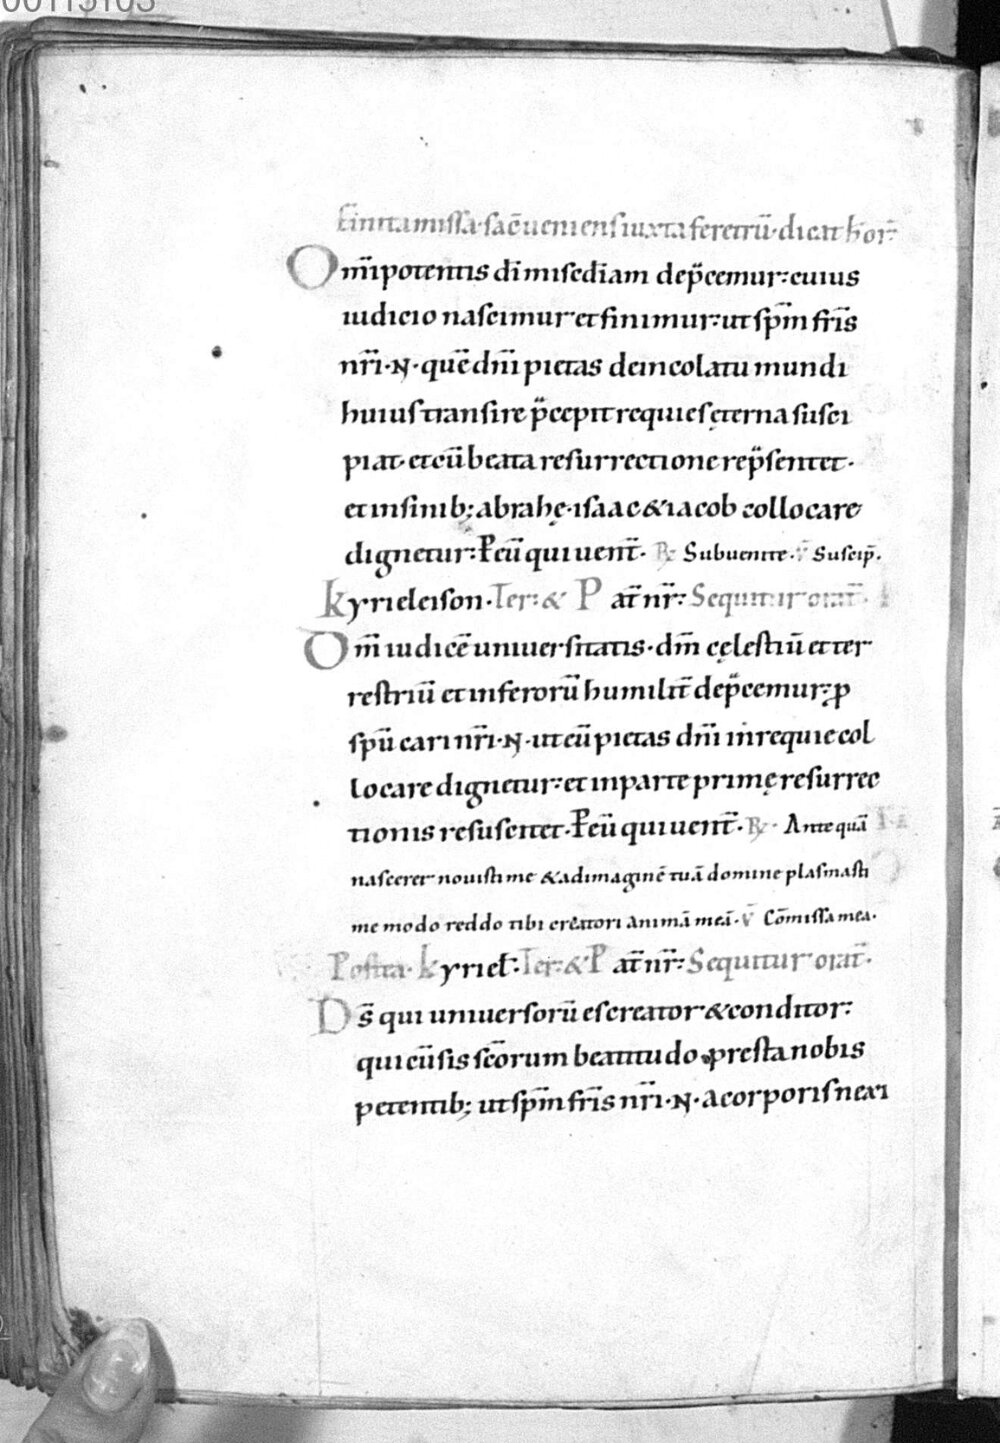 00113103
Finita missa · sac̄ ueniens iuxta feretrū · dicat h̄ or̄
Om̄ipotentis dī mis̄ediam dep̄cemur: cuius
iudicio nascimur et finimur: ut sp̄m fr̄is
nr̄i · N · quē dn̄i pietas de incolatu mundi
huius transire p̄cepit requies ęterna susci
piat · et eū beata resurrectione rep̄sentet ·
et in sinib; abrahę · isaac & iacob collocare
dignetur: P̄ eū qui uent̄ · R̄ Subuenite · V̄ Suscip̄ ·
Kyrieleison · Ter: & P at̄ nr̄: Sequitur orat̄ ·
Om̄ iudicē uniuersitatis · dm̄ cęlestiū et ter
restriū et inferorū humilit̄ dep̄cemur: ꝓ
spū cari nr̄i · N · ut eū pietas dn̄i in requie col
locare dignetur: et in parte primę resurrec
tionis resuscitet · P̄ eū qui uent̄ · R̄ · Ante quā
nascerer nouisti me & ad imaginē tuā domine plasmasti
me modo reddo tibi creatori animā meā · V̄ Cōmissa mea ·
Postea · Kyriel̄ · Ter: & P at̄ nr̄: Sequitur orat̄ ·
Ds̄ qui uniuersorū es creator & conditor:
qui cū sis sc̄orum beatitudo presta nobis
petentib; ut sp̄m fr̄is nr̄i · N · a corporis nexi